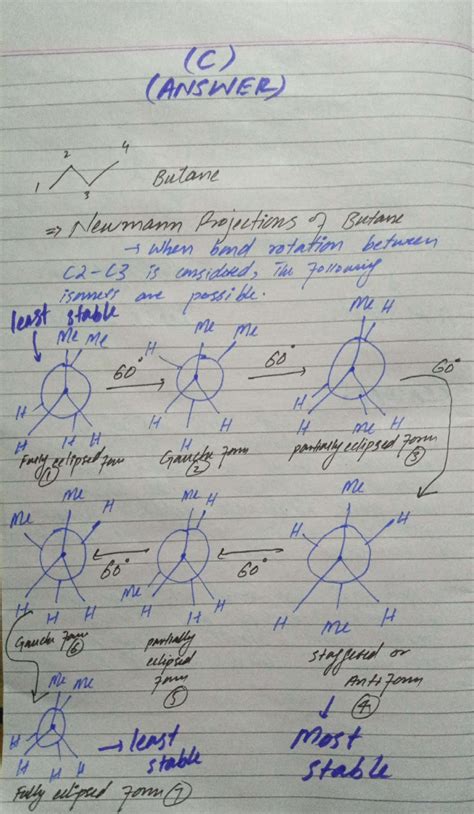 (C)
(ANSWER)
2 4
1 3
Butane
=> Newmann Projections of Butane
→ When bond rotation between
C2-C3 is considered, The following
isomers are possible.
least stable
Me Me
H
H H
60°
H Me Me
H H
H
60°
Me H
H
H Me H
60°
Fully eclipsed form
①
Gauche form
②
partially eclipsed form ③
Me Me H
H
H H
60°
H Me
Me H H
60°
Me
H H
H H
Me
Gauche form ⑥
partially
eclipsed
form
⑤
staggered or
Anti form
④
Me Me
H
H H
→ least
stable
Most
stable
Fully eclipsed form ⑦